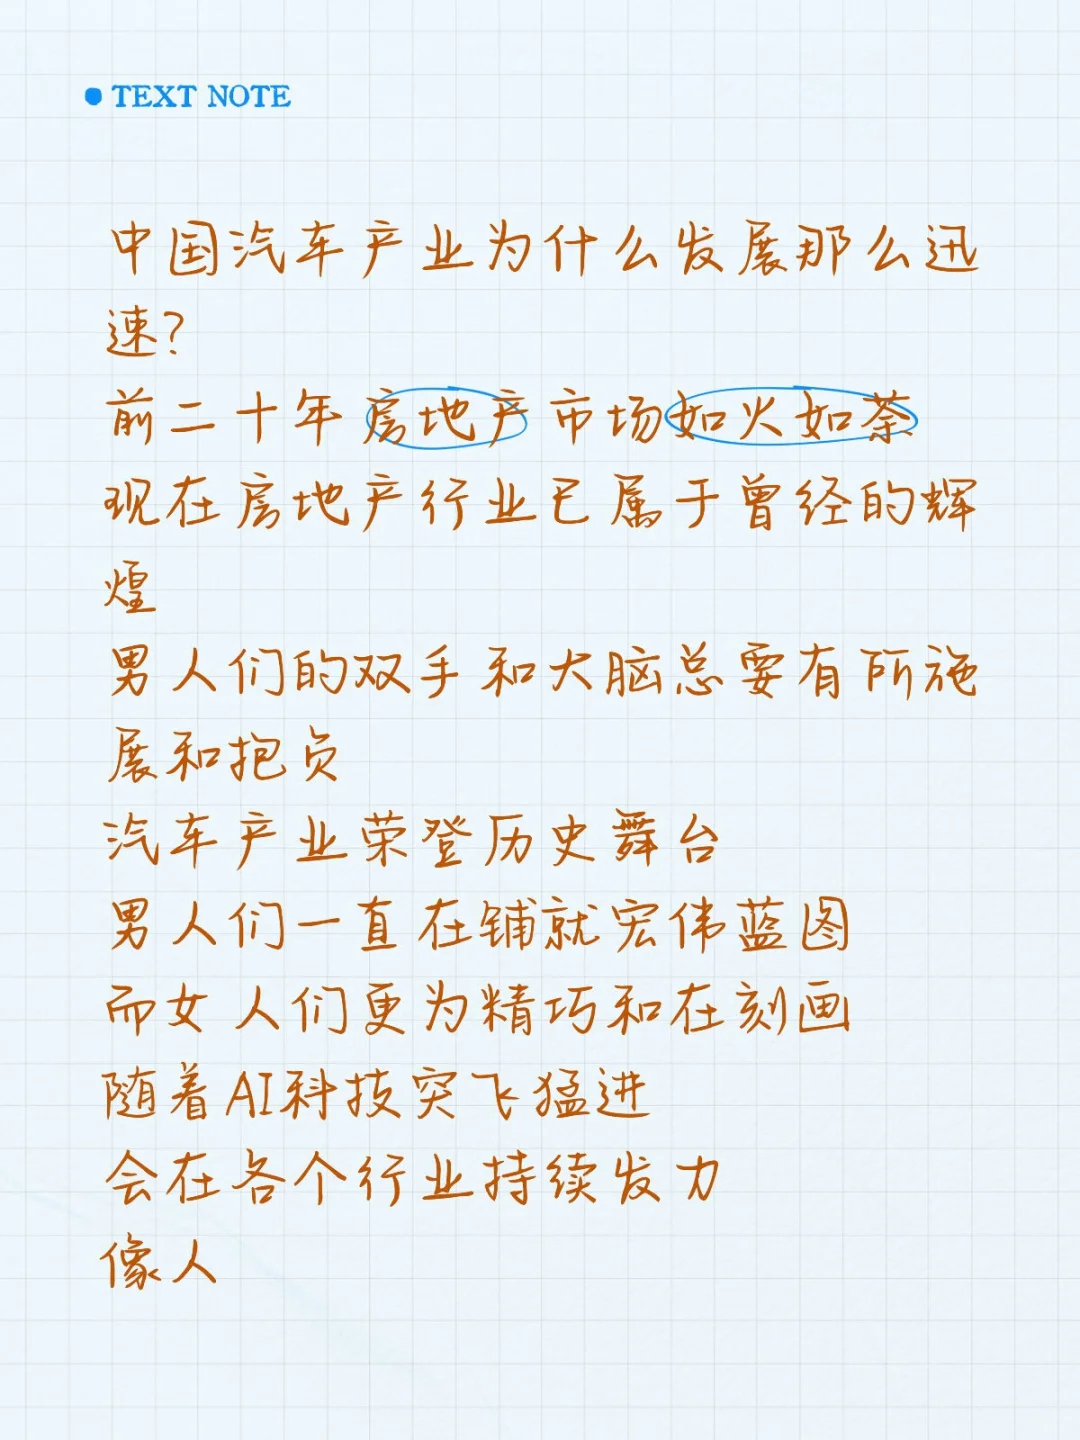 TEXT NOTE
中国汽车产业为什么发展那么迅
速?
前二十年房地产市场如火如荼
现在房地产行业已属于曾经的辉
煌
男人们的双手和大脑总要有所施
展和抱负
汽车产业荣登历史舞台
男人们一直在铺就宏伟蓝图
而女人们更为精巧和在刻画
随着AI科技突飞猛进
会在各个行业持续发力
像人